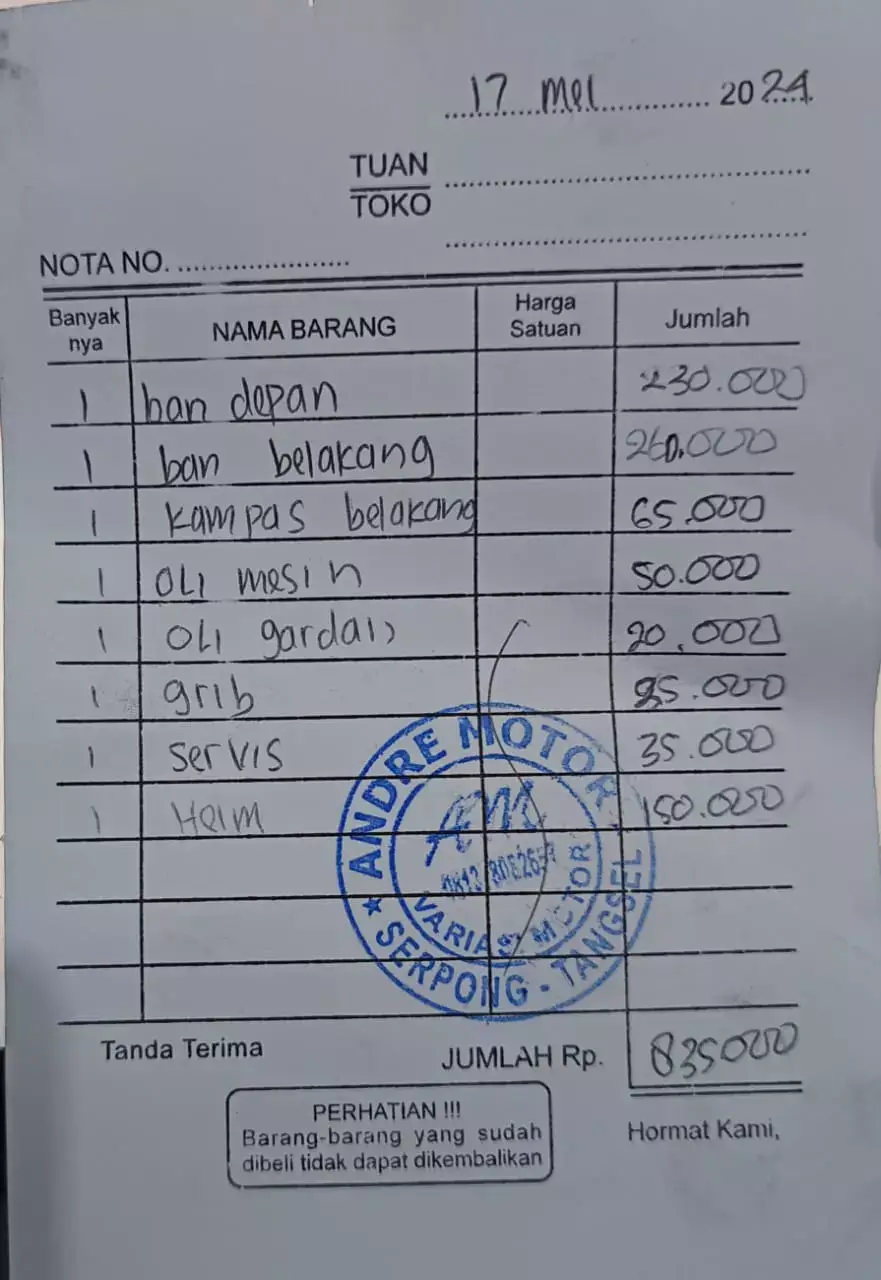 17 Mei 2024
TUAN
TOKO
NOTA NO.
Banyak nya NAMA BARANG Harga Satuan Jumlah
1 ban depan 230.000
1 ban belakang 260.000
1 kampas belakang 65.000
1 oli mesin 50.000
1 oli gardan 20.000
1 grib 25.000
1 servis 35.000
1 Helm 150.000
ANDRE MOTOR
AM
VARIASI MOTOR
★ SERPONG - TANGSEL
Tanda Terima JUMLAH Rp. 835000
PERHATIAN !!!
Barang-barang yang sudah
dibeli tidak dapat dikembalikan
Hormat Kami,